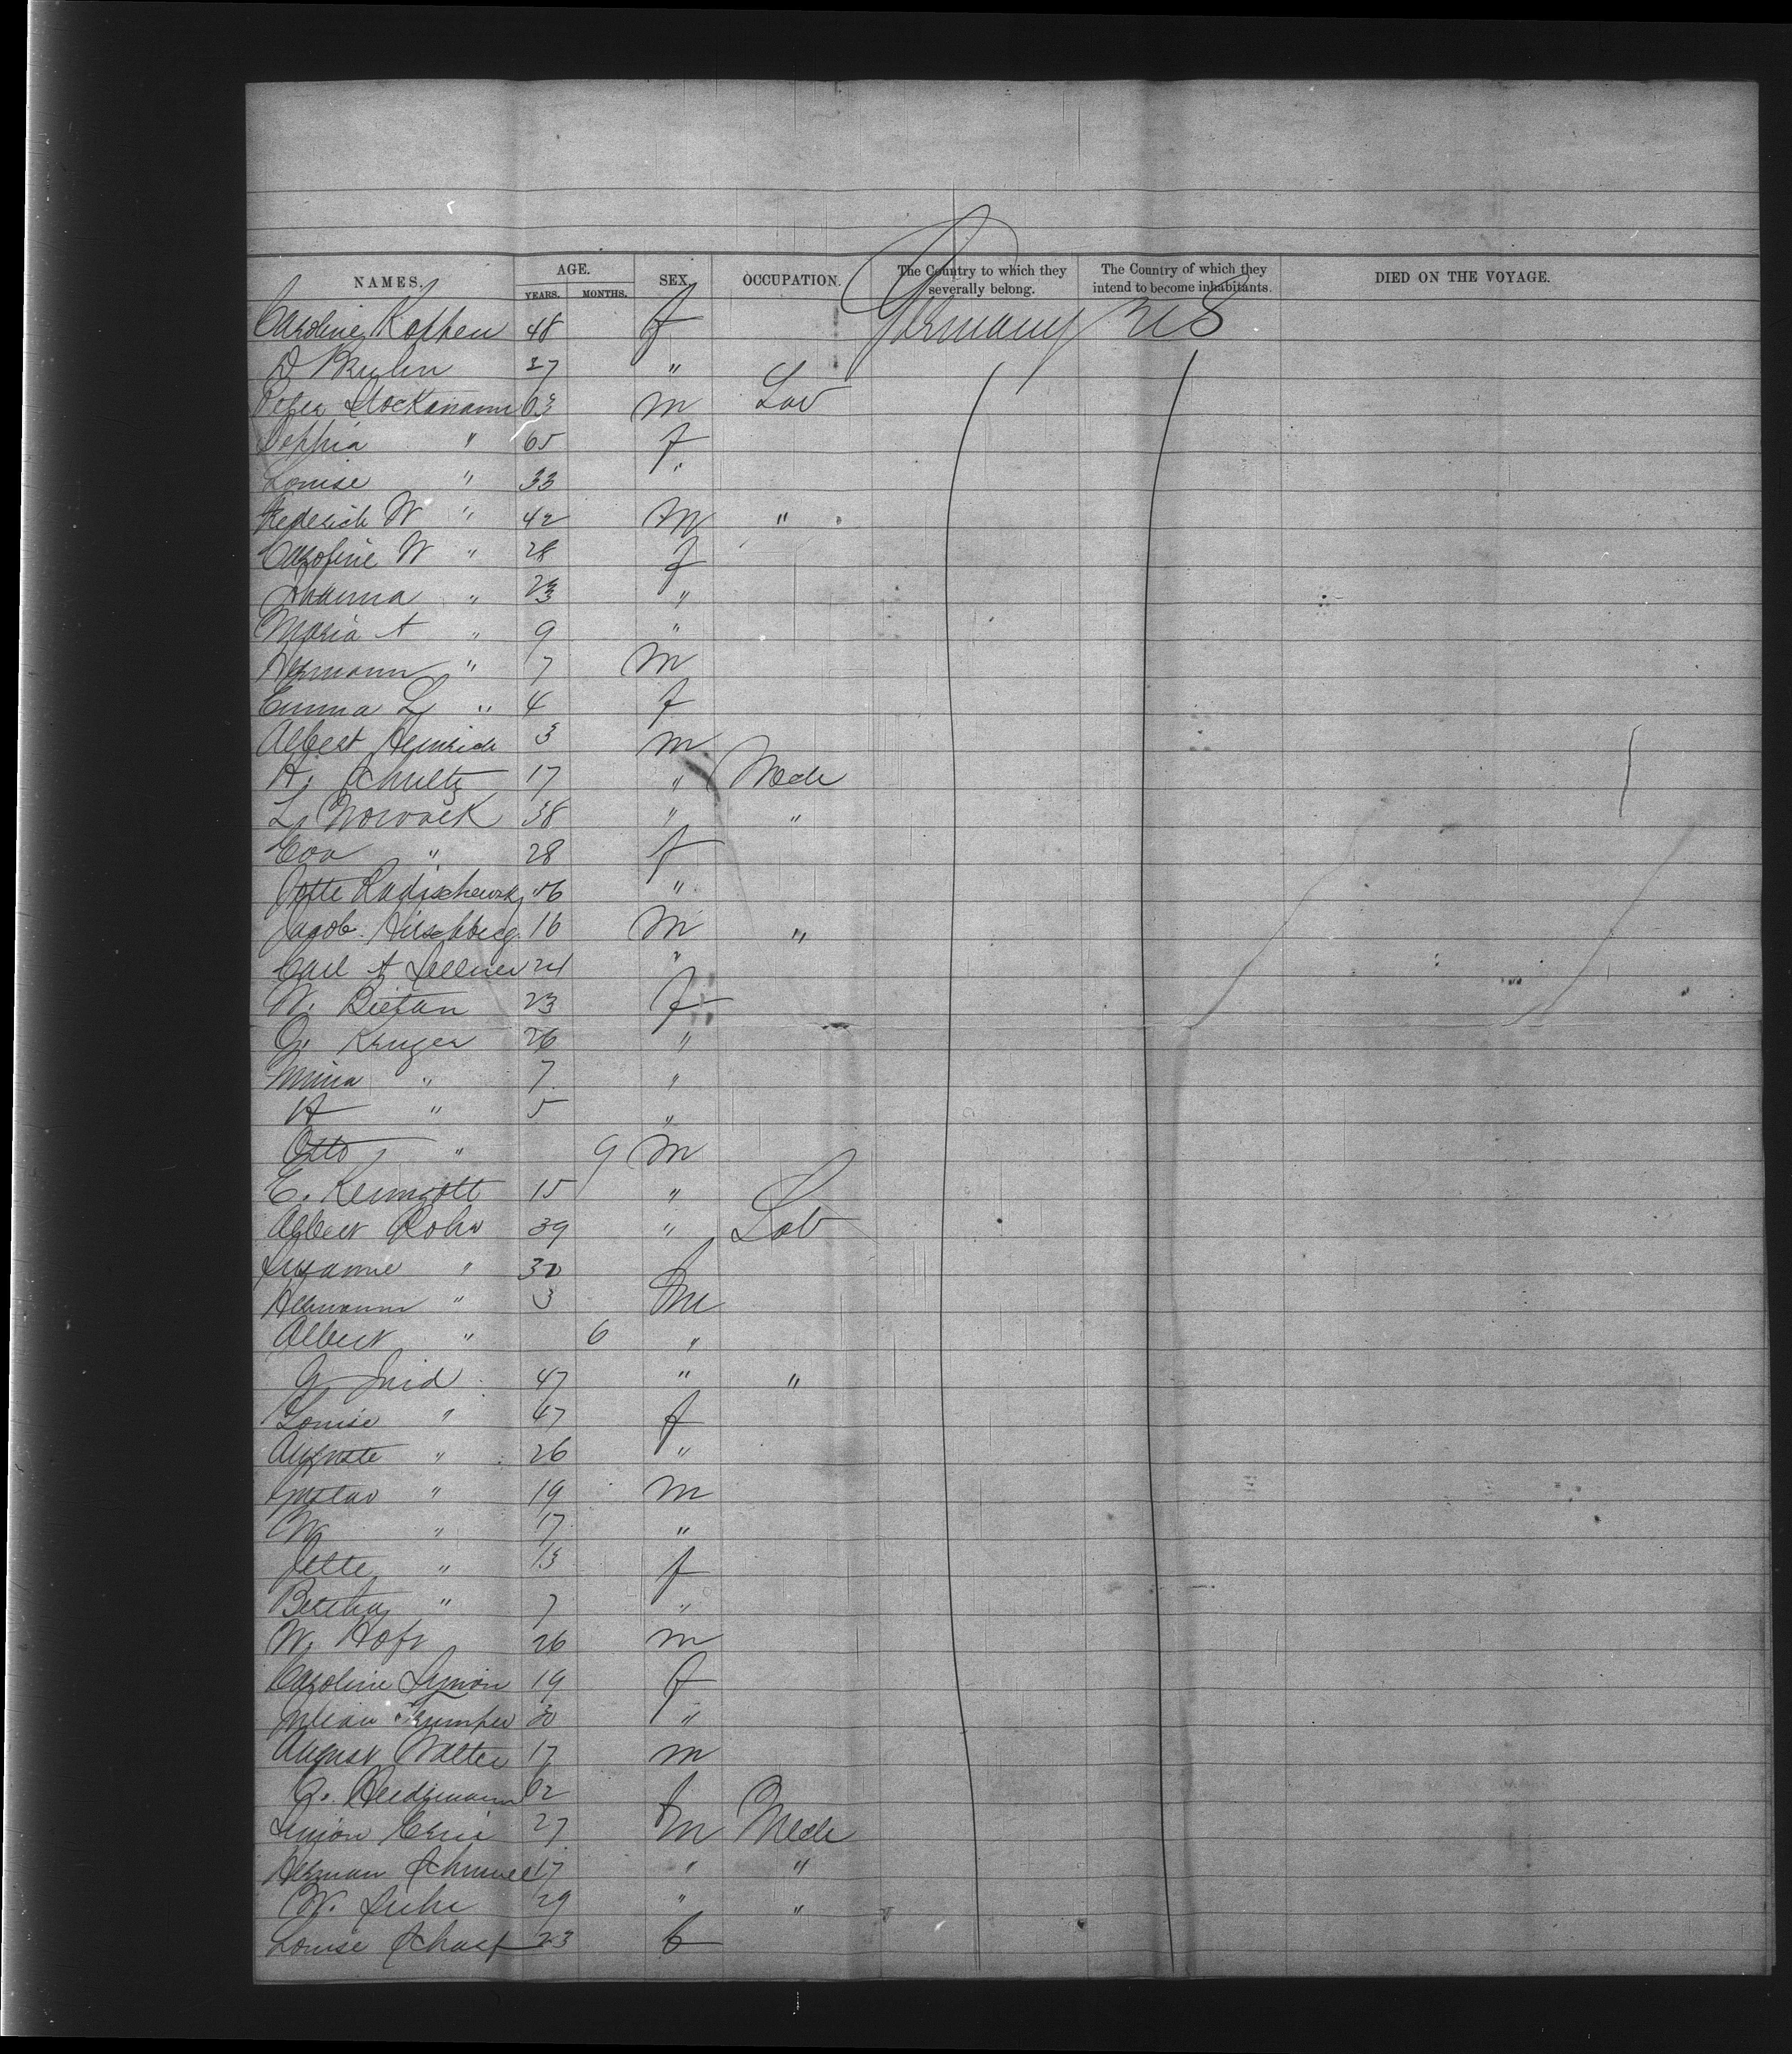 NAMES. AGE. SEX. OCCUPATION. The Country to which they severally belong. The Country of which they intend to become inhabitants. DIED ON THE VOYAGE.
YEARS. MONTHS.
Caroline Kothen 48 f Germany U S
D 27 "
Peter Stockmann 63 m Lab
Sophia " 65 f
Louise " 33 "
Frederich W " 42 m "
Caroline W " 28 f
Johanna " 23 "
Maria A " 9 "
Hermann " 7 m
Emma L " 4 f
Albert Heinrich 3 m
H. Schultz 17 " Mech
L. Nowack 38 " "
Eva " 28 f
Jotte "
Jacob Hirschberg 16 m "
Carl A Sellner 24 "
W. Dietan 23 f
G. Kruger 26 "
Mina " 7 "
A " 5 "
Otto " 9 m
E. 15 "
Albert Rohr 39 " Lab
Susanne " 30
Hermann " 3 m
Albert " 6 "
G 47 " "
Louise " 47 f
Auguste " 26 "
Gustav " 19 m
W " 17 "
Jette " 13 f
Bertha " 7 "
W. Hofr 26 m
Caroline Symon 19 f
30 "
August Walter 17 m
62
Simon 27 m Mech
Herman 17 " "
W. 29 " "
Louise Scharf 23 f